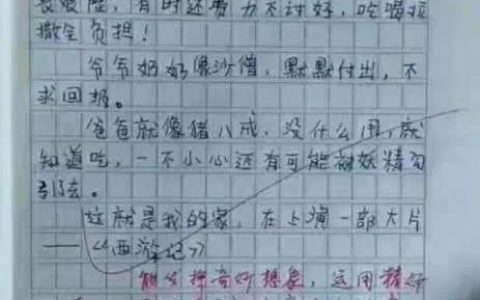 有时还费力不讨好,吃喝拉
撒全负担!
爷爷奶奶像沙僧,默默付出,不
求回报。
爸爸就像猪八戒,没什么用,就
知道吃,一不小心还有可能被妖精勾
引去。
这就是我的家,在上演一部大片
——《西游记》
能发挥奇妙想象,运用精